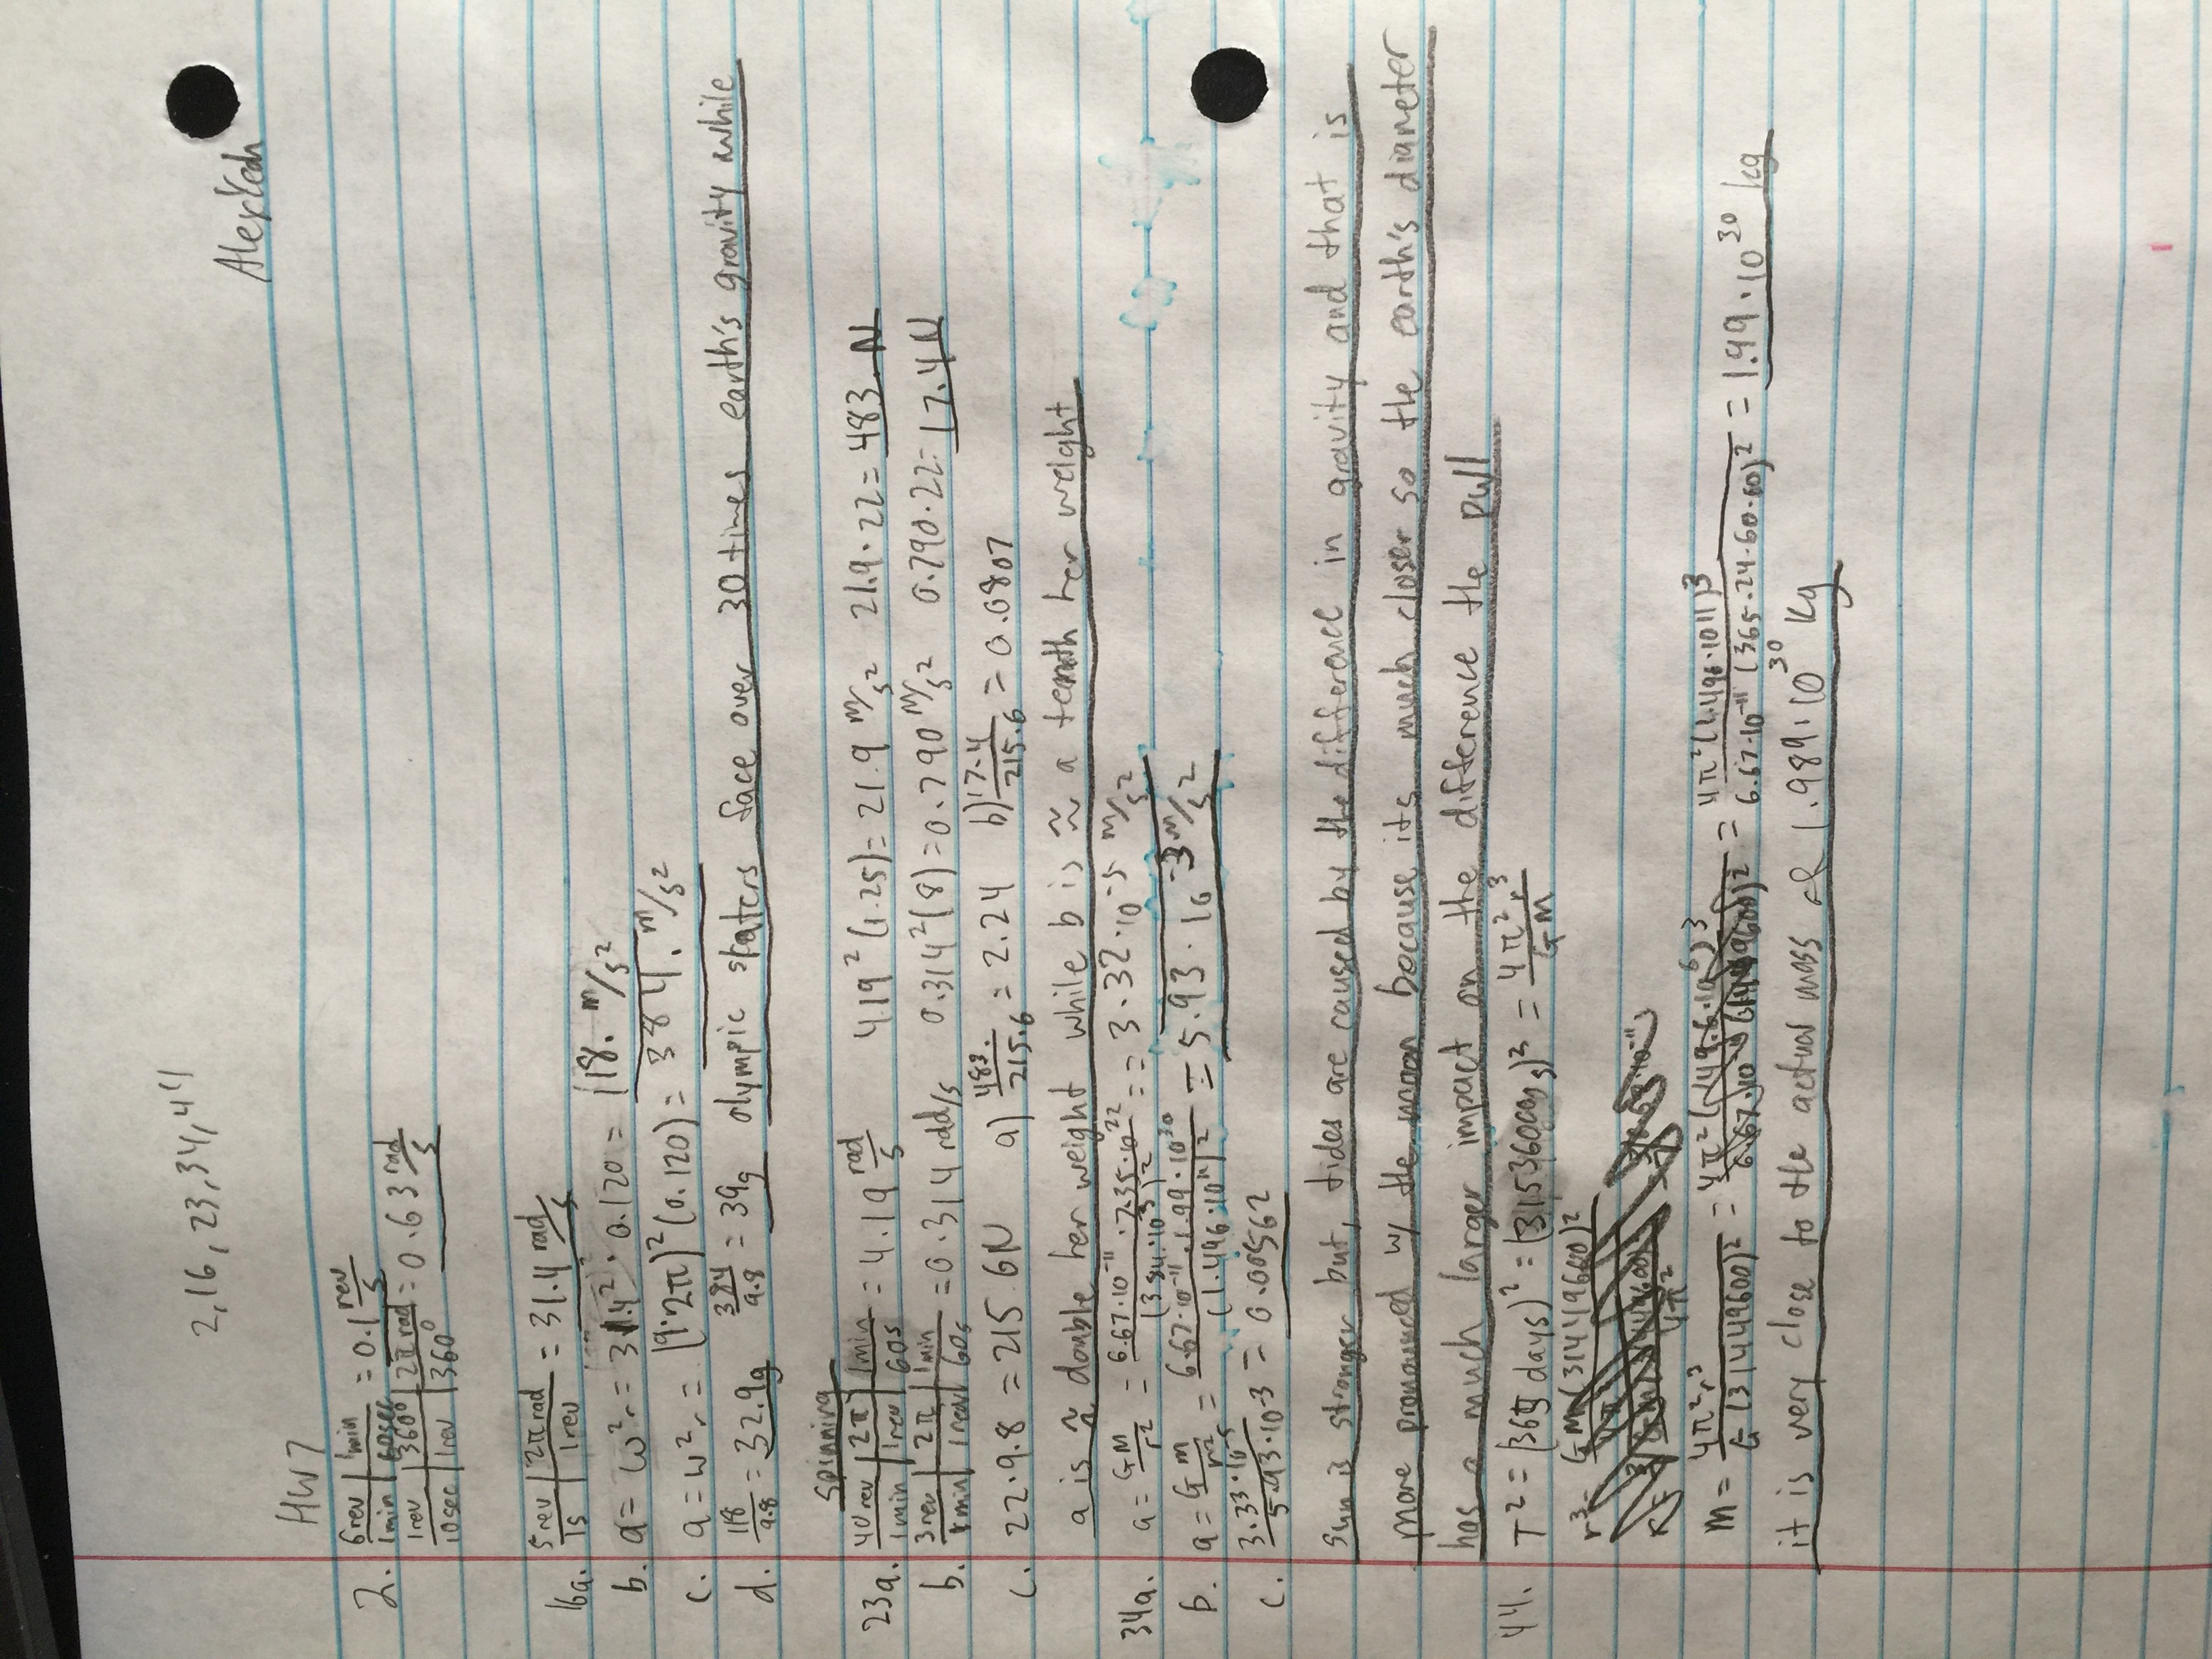 2,16,23,34,44
HW7
2. 6rev | 1min = 0.1 rev/s
1min | 60sec
1rev | 360° | 2π rad = 0.63 rad/s
10sec | 1rev | 360°
16a. 5rev | 2π rad = 31.4 rad/s
1s | 1rev
b. a = ω²r = 31.4² · 0.120 = 118. m/s²
c. a = w²r = (9·2π)²(0.120) = 384. m/s²
d. 118/9.8 = 32.9g 384/9.8 = 39g olympic skaters face over 30 times earth's gravity while
spinning
23a. 40rev | 2π | 1min = 4.19 rad/s 4.19²(1.25) = 21.9 m/s² 21.9·22 = 483. N
1min | 1rev | 60s
b. 3rev | 2π | 1min = 0.314 rad/s 0.314²(8) = 0.790 m/s² 0.790·22 = 17.4N
1min | 1rev | 60s
c. 22·9.8 = 215.6N a) 483./215.6 = 2.24 b) 17.4/215.6 = 0.0807
a is ≈ double her weight while b is ≈ a tenth her weight
34a. a = GM/r² = 6.67·10⁻¹¹·7.35·10²²/(384·10³)² = = 3.32·10⁻⁵ m/s²
b. a = G m/r² = 6.67·10⁻¹¹·1.99·10³⁰/(1.496·10¹¹)² = 5.93·10⁻³ m/s²
c. 3.33·10⁻⁵/5.93·10-3 = 0.00562
sun is stronger but, tides are caused by the difference in gravity and that is
more pronounced w/ the moon because its much closer so the earth's diameter
has a much larger impact on the difference the pull
44. T² = (365 days)² = (31536000 s)² = 4π²r³/GM
r³= GM(31449600)²
4π²
m = 4π²r³/G(31449600)² = 4π²(149.6·10⁶)³/6.67·10 = 4π²(1.496·1011)³/6.67·10⁻¹¹(365·24·60·60)² = 1.99·10³⁰ kg
it is very close to the actual mass of 1.989·10³⁰ Kg